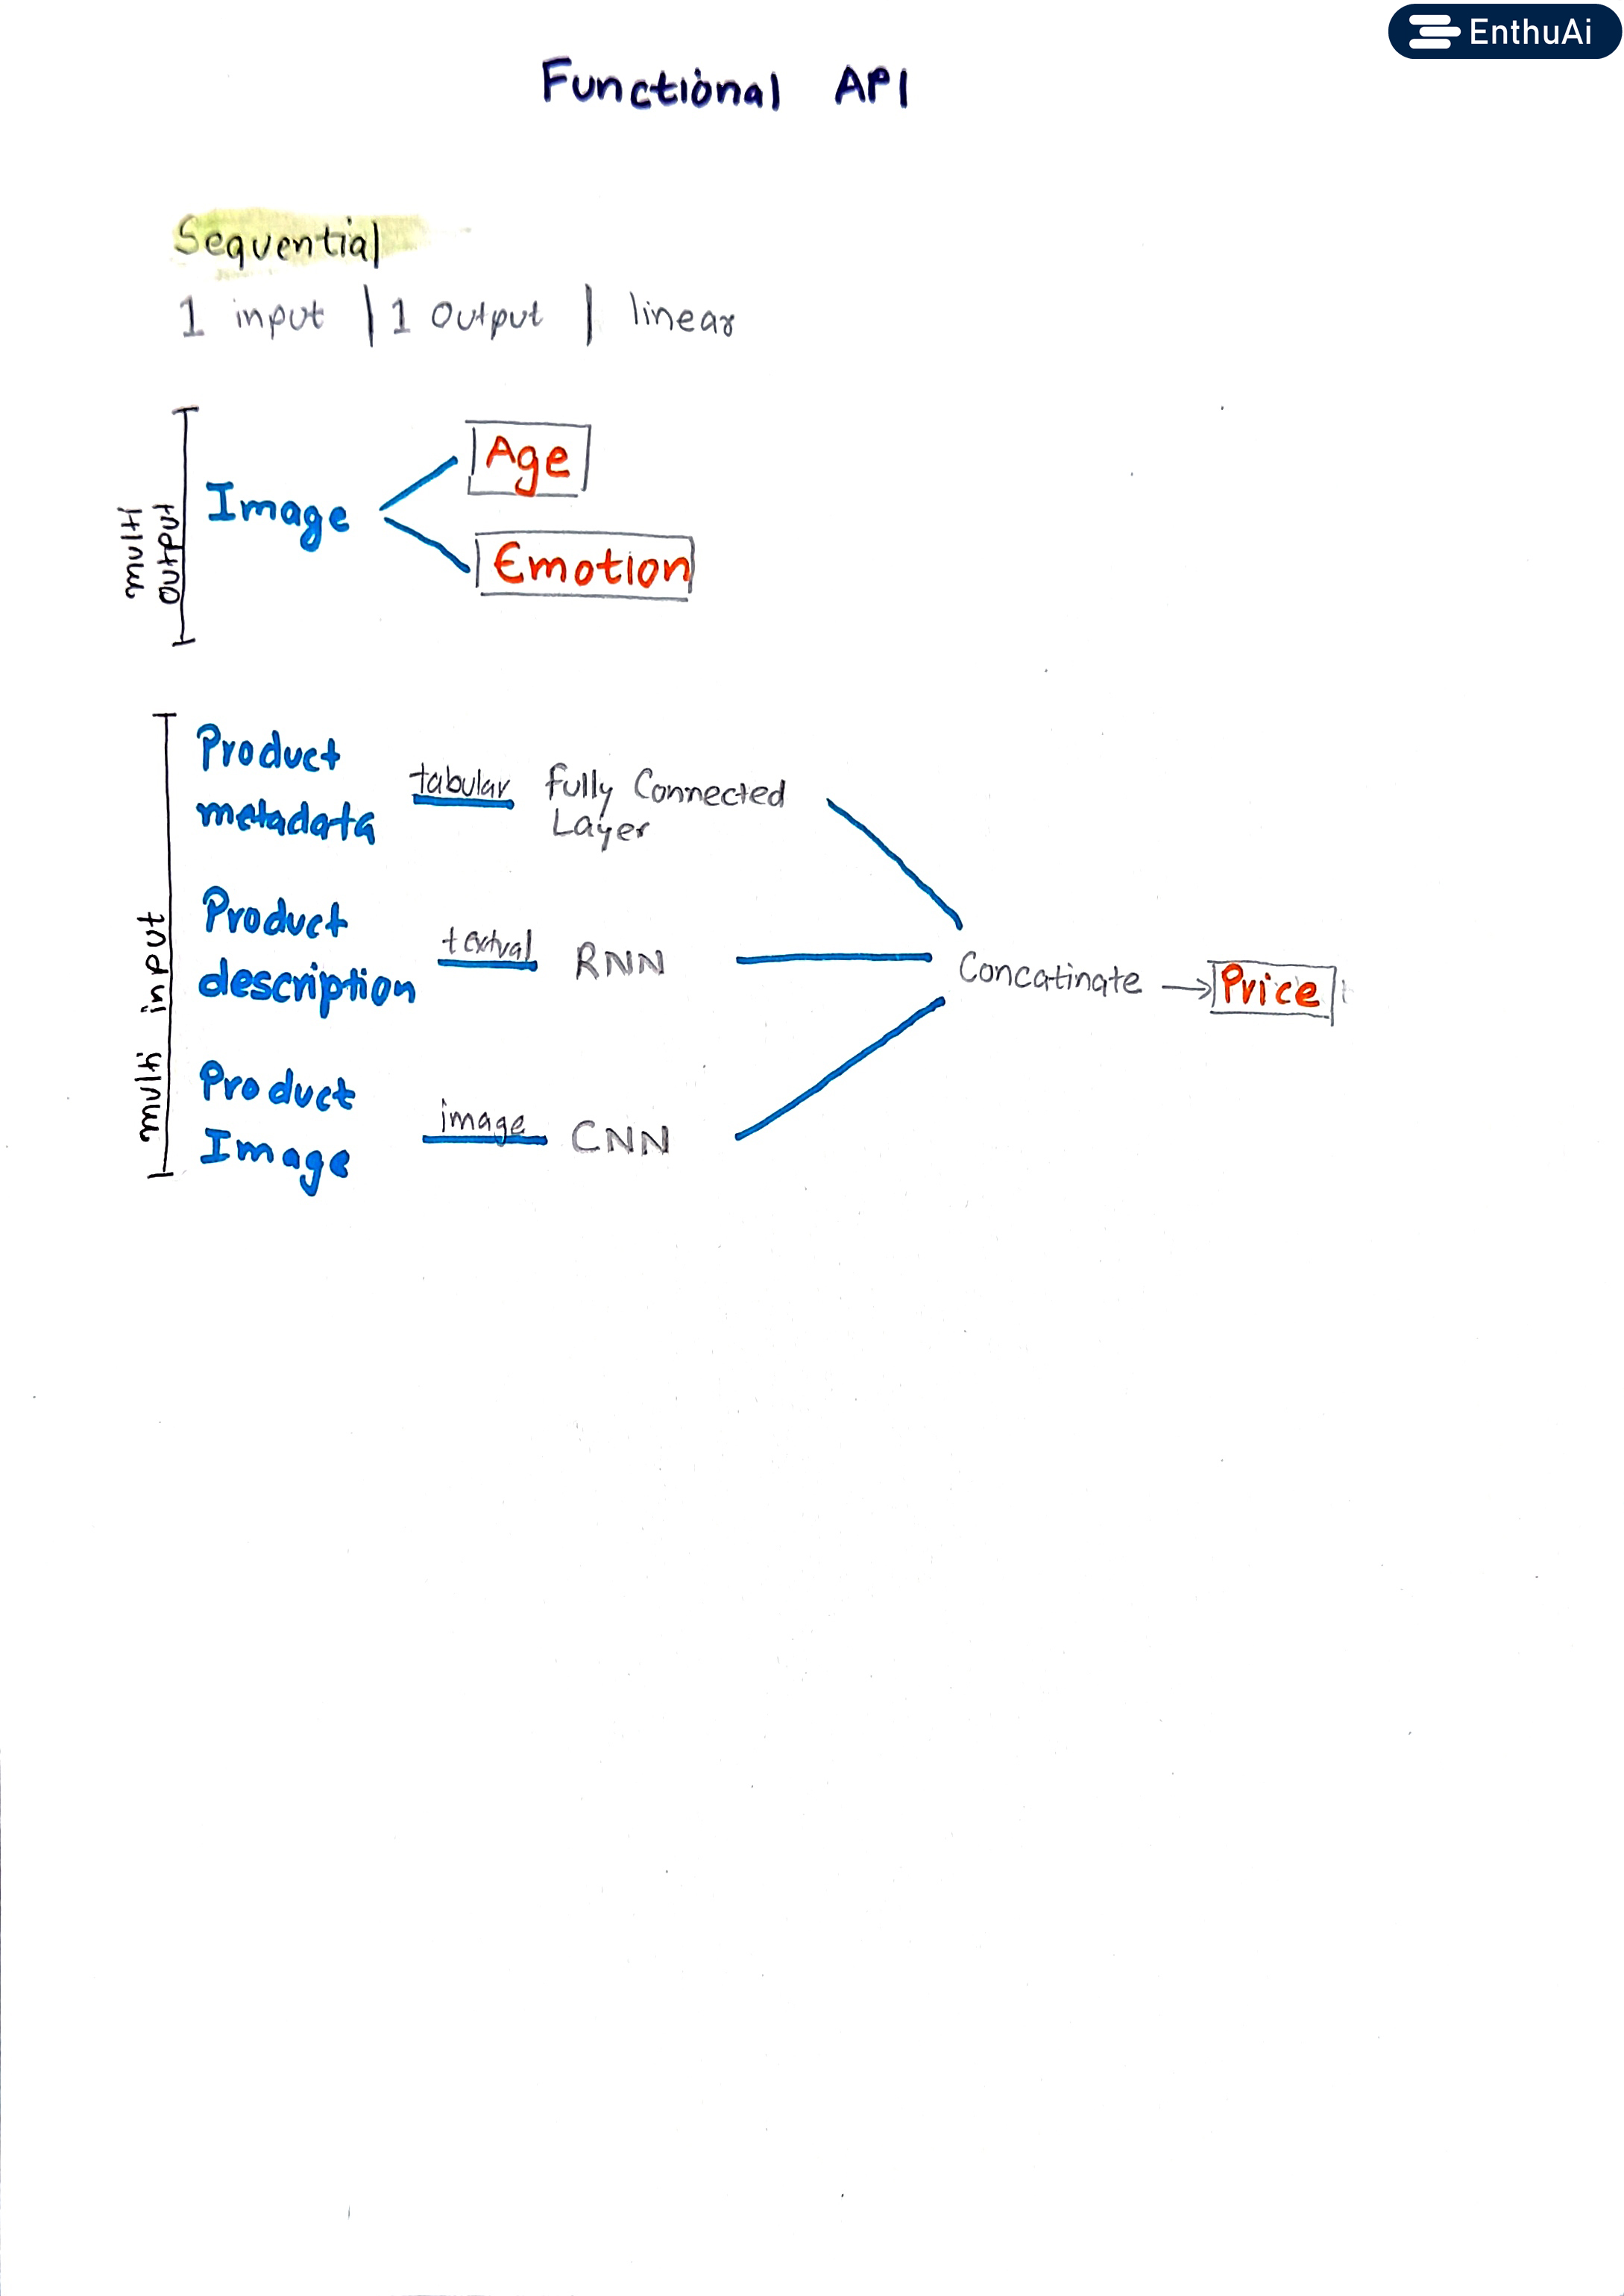 EnthuAi
Functional API
Sequential
1 input | 1 Output | linear
multi
output
Image
Age
Emotion
multi input
Product
metadata
tabular
Fully Connected
Layer
Product
description
textual
RNN
Concatinate → Price
Product
Image
image
CNN